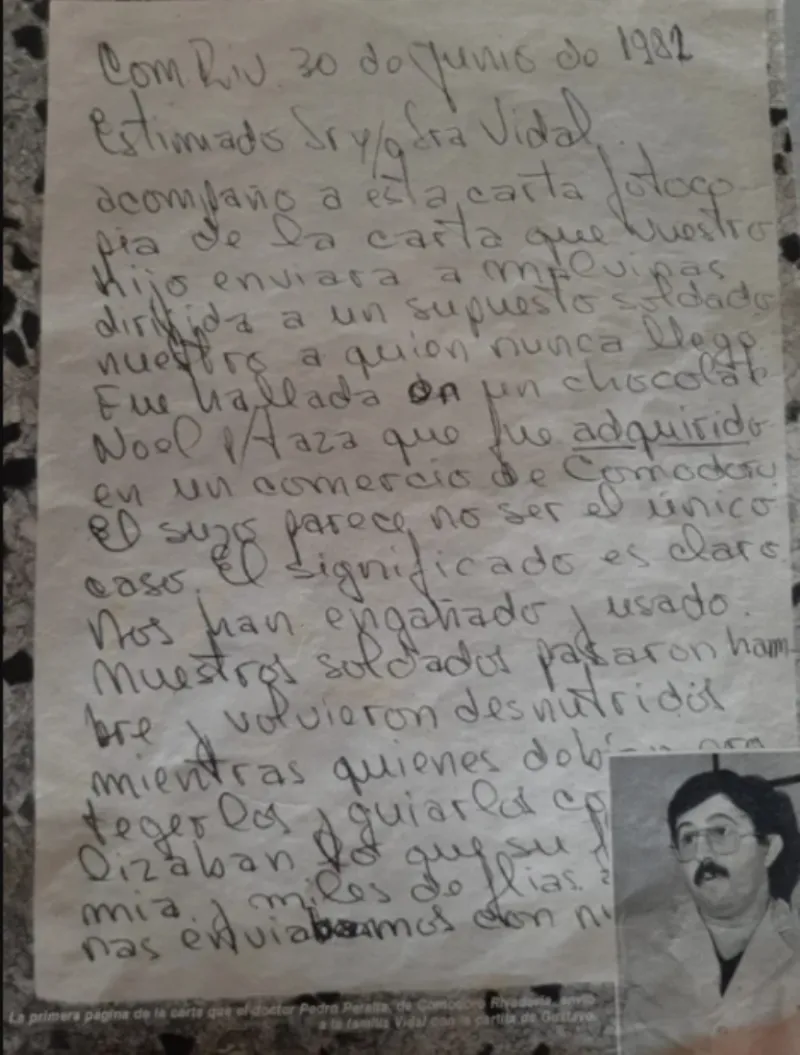 Com Riv 30 de junio de 1982
Estimado Sr y/o Sra Vidal
acompaño a esta carta fotoco
pia de la carta que vuestro
hijo enviara a malvinas
dirigida a un supuesto soldado
nuestro a quien nunca llego
Fue hallada en un chocolate
Noel p/taza que fue adquirido
en un comercio de Comodoro
El suyo parece no ser el único
caso. El significado es claro
Nos han engañado y usado.
Nuestros soldados pasaron ham
bre y volvieron desnutridos
mientras quienes
teger los y guiarlos
lizaban lo que su
mia y miles de flias.
nas enviabamos con
La primera página de la carta que el doctor Pedro Peralta, de Comodoro Rivadavia, envió
a la familia Vidal con la cartita de Gustavo.